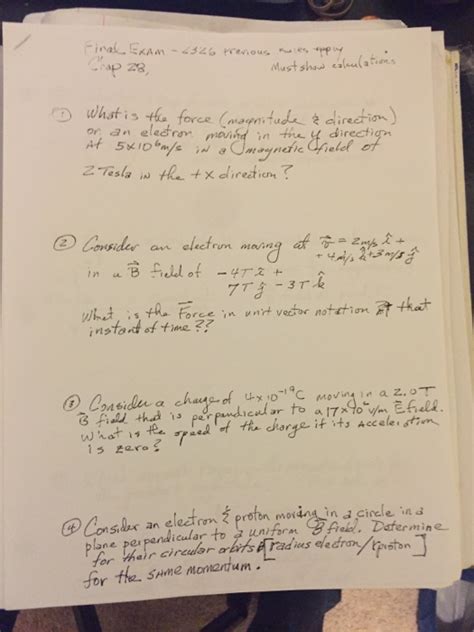 Final Exam - 2326 Previous rules apply
Chap 28, Must show calculations
① What is the force (magnitude & direction)
on an electron moving in the y direction
At 5x10⁶m/s in a magnetic field of
2 Tesla in the +x direction?
② Consider an electron moving at v⃗ = 2m/s î +
+ 4m/s k̂ + 3m/s ĵ
in a B⃗ field of -4T î +
7T ĵ - 3T k̂
What is the Force in unit vector notation at that
instant of time??
③ Consider a charge of 4x10⁻¹⁹C moving in a 2.0T
B⃗ field that is perpendicular to a 17x10⁶ V/m E field.
What is the speed of the charge if its acceleration
is zero?
④ Consider an electron & proton moving in a circle in a
plane perpendicular to a uniform B⃗ field. Determine
for their circular orbits [radius electron/rproton]
for the same momentum.